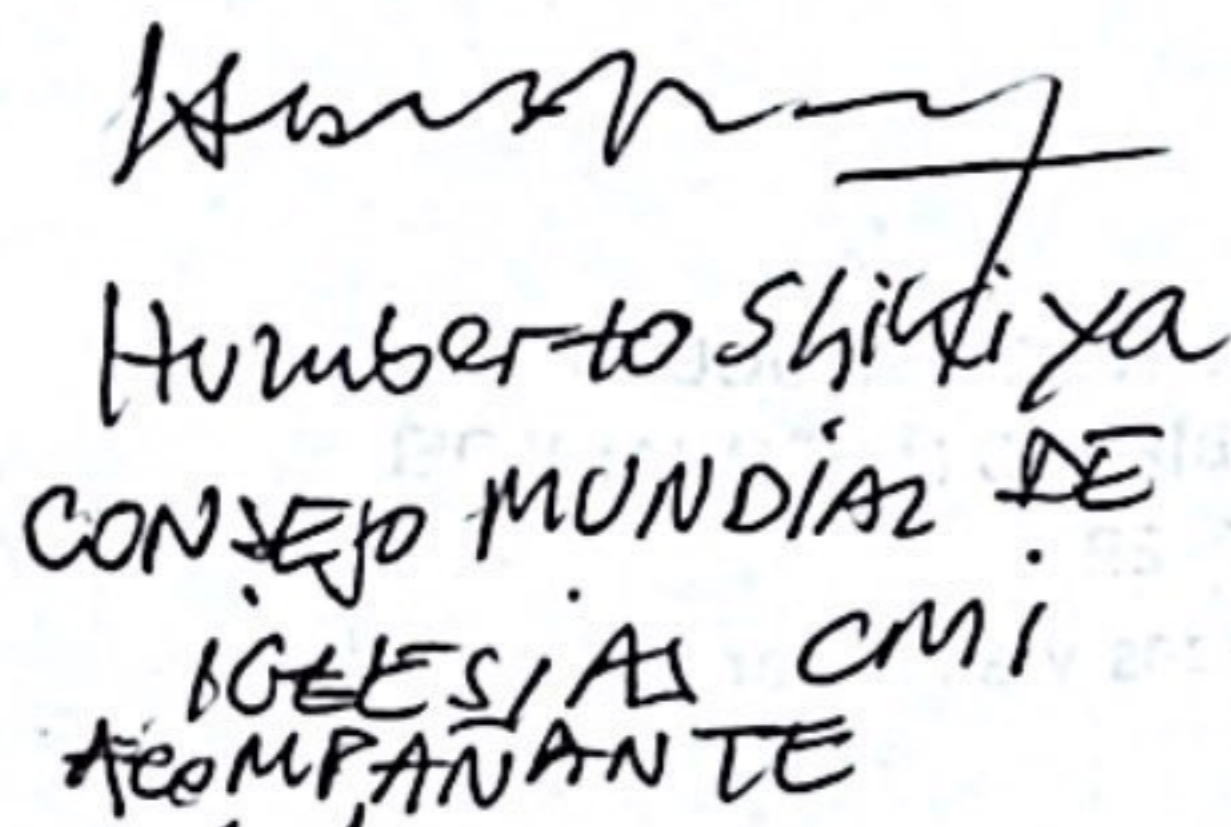 Humberto Shikiya
CONSEJO MUNDIAL DE
IGLESIAS CMI
ACOMPAÑANTE